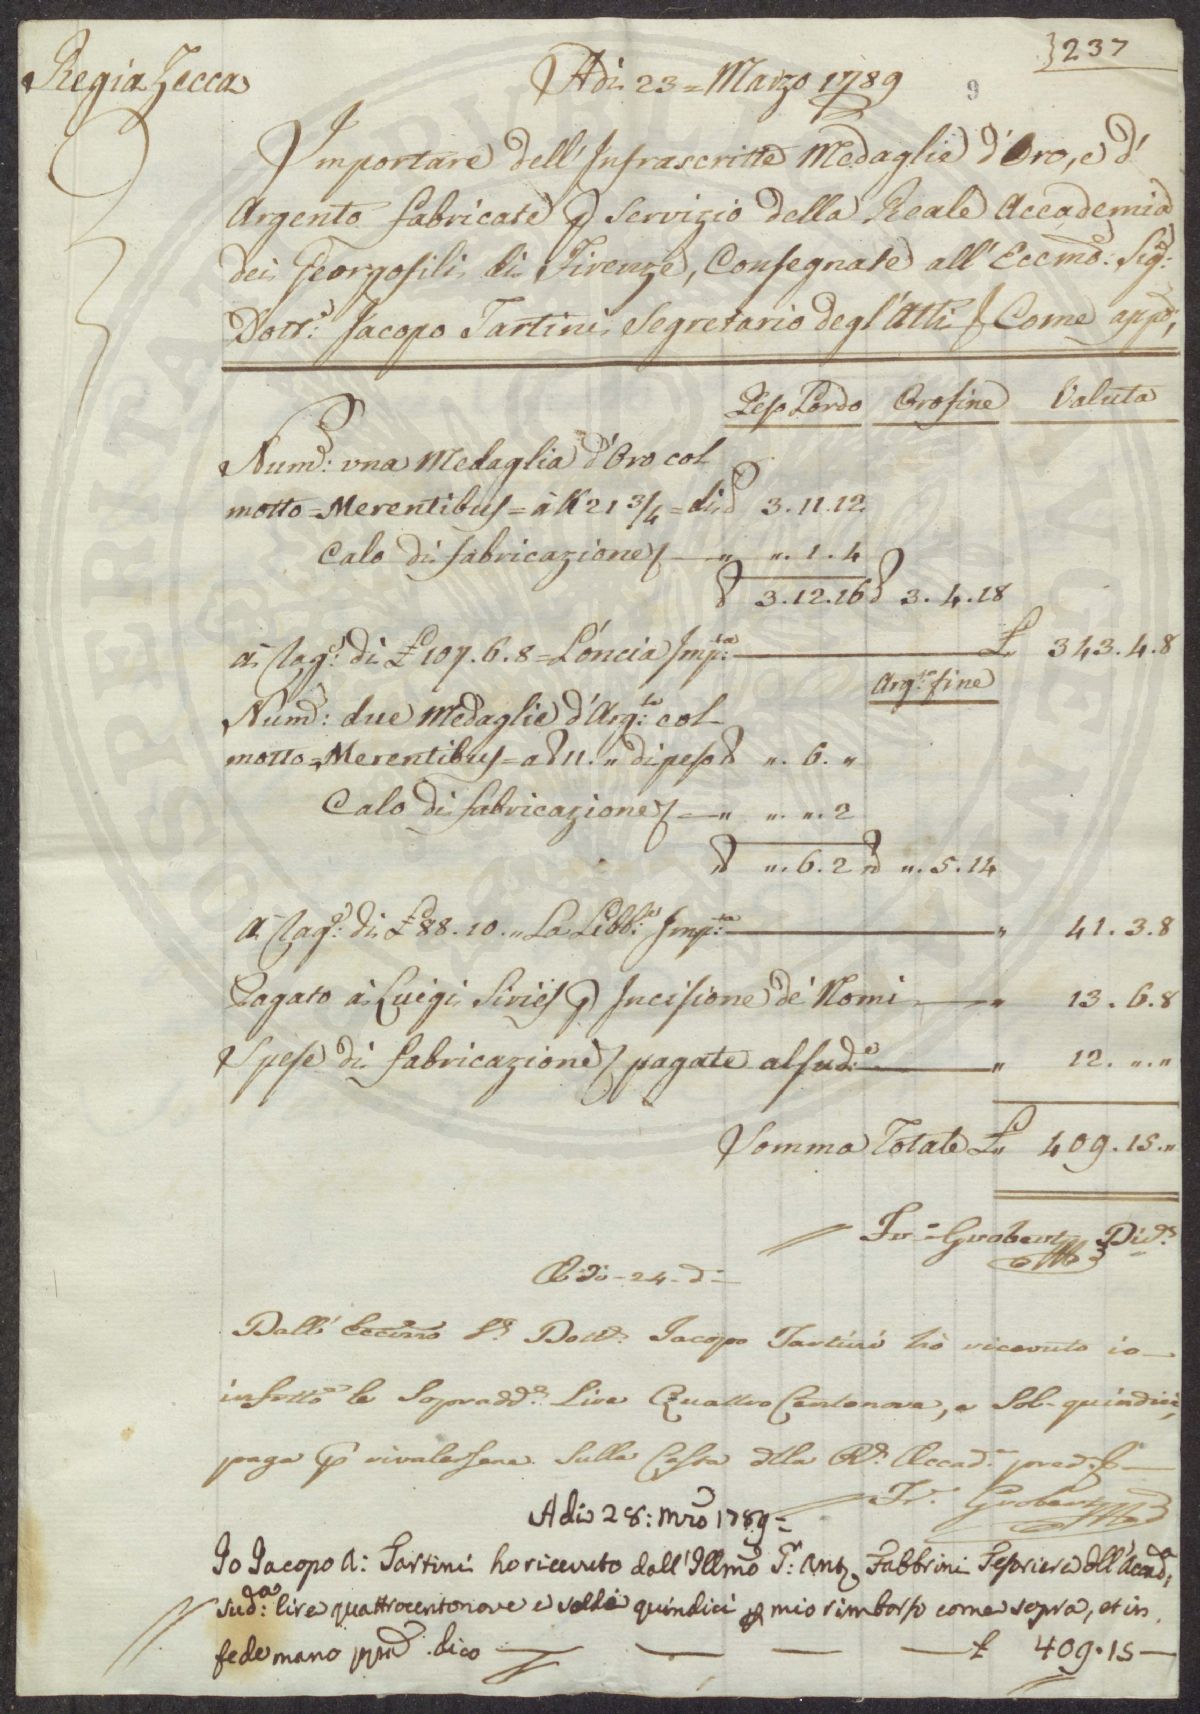 Regia Zecca
Adi 23 = Marzo 1789
9
237
Importare dell' Infrascritte Medaglie d'Oro, e d'
Argento fabricate p servizio della Reale Accademia
dei Georgofili di Firenze, Consegnate all' Eccmo: Sig:
Dott:e Jacopo Tartini Segretario degl' Atti Come app:
Peso Lordo Oro fine Valuta
Num: una Medaglia d'Oro col
motto = Merentibus = à K 21 3/4 = di 3.11.12
Calo di fabricazione — „ „.1.4
3.12.16 3.4.18
a rag: di £ 107.6.8 = L'oncia Imp:ta — £ 343.4.8
Arg:to fine
Num: due Medaglie d'Arg:to col
motto = Merentibus = a 11. „ di peso „. 6. „
Calo di fabricazione — „ „. „. 2
„. 6. 2 „. 5. 14
a rag: di £ 88.10. „ La Libb: Imp:ta — „ 41.3.8
Pagato à Luigi Siries p Incisione de' Nomi — „ 13.6.8
Spese di fabricazione pagate al sud:o — „ 12. „. „
Somma Totale £ 409.15. „
Fr:o Grobert Dir.e
A di - 24 - d:o
Dall' Eccmo S.r Dott.r Jacopo Tartini hò ricevuto io
infrtto le Sopradd.e Lire Quattro Centonove, e Sol- quindici,
paga p rivalersene Sulla Cassa dlla R.e Accad.a pred.a
Fr.o Grobert
A di 28: Mrzo 1789 =
Io Jacopo A: Tartini ho ricevuto dall' Illmo S.r Ant. Fabbrini Tesoriere dll' Accad.a
sud:a lire quattrocentonove e soldi quindici p mio rimborso come sopra, et in
fede mano ppria dico — £ 409.15 —